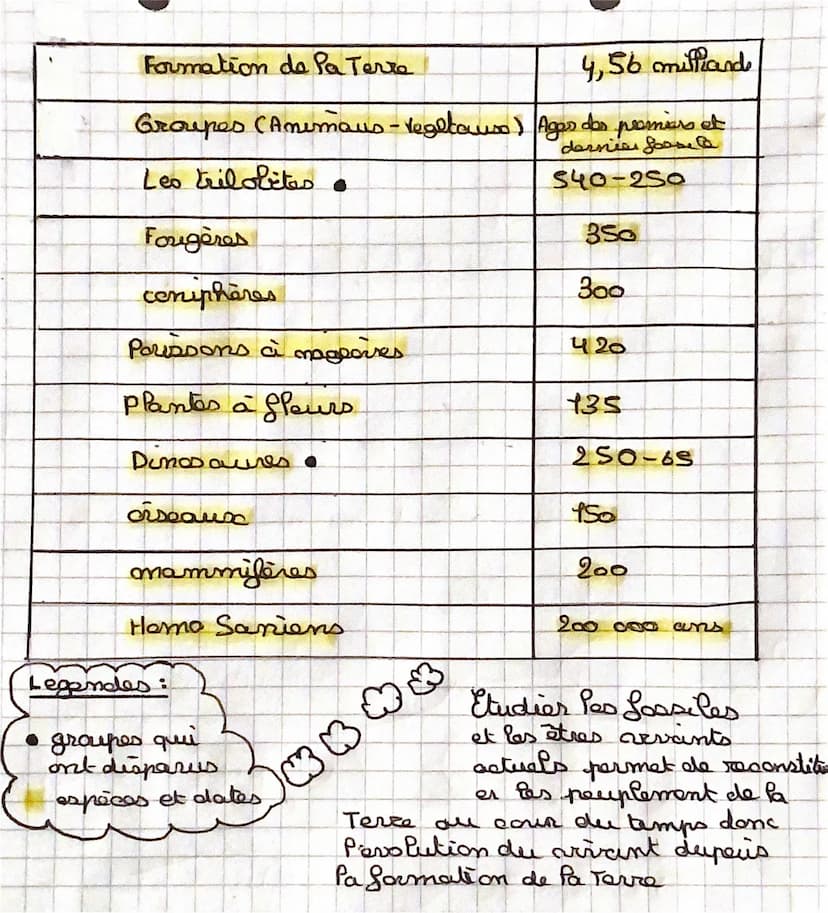 Formation de la Terre 4,56 milliards
Groupes (Animaus - Vegetaux) Ages des premiers et
dernier fossile
Les trilobites • 540-250
Fougères 350
coniphères 300
Poissons à magoires 420
Plantes à fleurs 135
Dinosaures • 250-65
oiseaux 150
mammifères 200
Homo Sapiens 200 000 ans
Legendes :
• groupes qui
ont disparus
espèces et dates
Etudier les fossiles
et les êtres vivants
actuels permet de reconstitu
er les peuplement de la
Terre au cour du temps donc
l'evolution du vivant depuis
la formation de la Terre